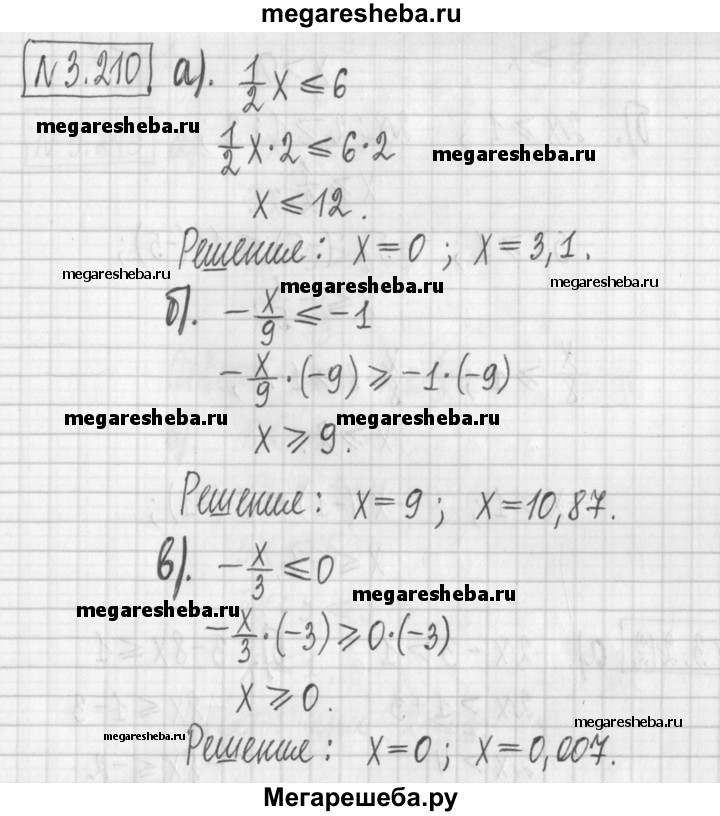 megaresheba.ru
N 3.210 а). 1/2 x ≤ 6
megaresheba.ru
1/2 x · 2 ≤ 6 · 2 megaresheba.ru
x ≤ 12.
Решения: x = 0; x = 3,1.
megaresheba.ru megaresheba.ru megaresheba.ru
б). - x/9 ≤ -1
- x/9 · (-9) ≥ -1 · (-9)
megaresheba.ru megaresheba.ru
x ≥ 9.
Решения: x = 9; x = 10,87.
в). - x/3 ≤ 0
megaresheba.ru megaresheba.ru
- x/3 · (-3) ≥ 0 · (-3)
x ≥ 0.
megaresheba.ru megaresheba.ru
Решения: x = 0; x = 0,007.
Мегарешеба.ру